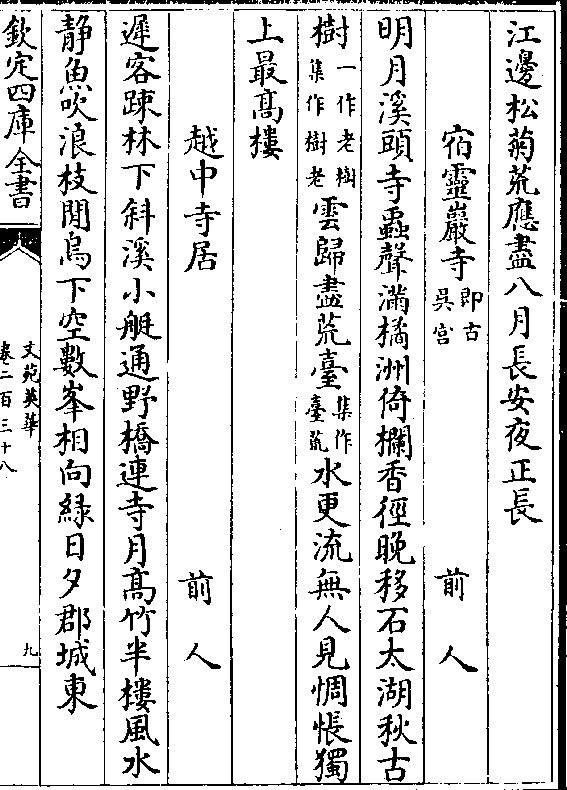 江邊松菊荒應盡八月長安夜正長
宿靈巖寺即古吳宫　前人
明月溪頭寺蟲聲滿橘洲倚欄香徑晚移石太湖秋古
樹一作老樹集作樹老雲歸盡荒臺集作臺荒水更流無人見惆悵獨
上最髙樓
越中寺居　前人
遲客踈林下斜溪小艇通野橋連寺月髙竹半樓風水
静魚吹浪枝閒鳥下空數峯相向緑日夕郡城東
欽定四庫全書
文苑英華
卷二百三十八
九